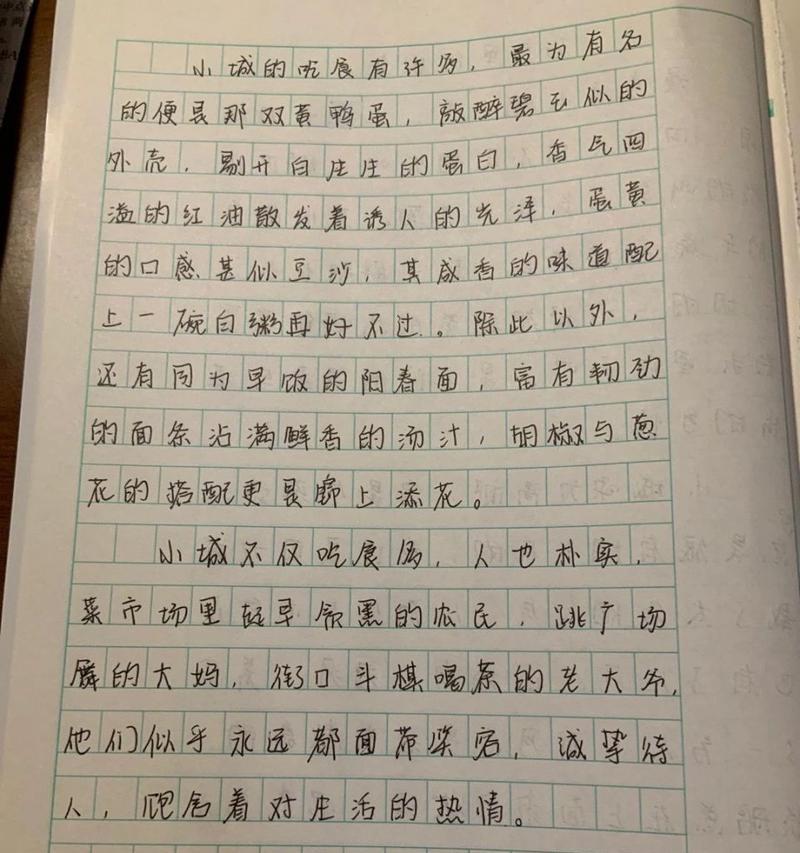 小城的吃食有许多，最为有名
的便是那双黄鸭蛋，敲醉碧玉似的
外壳，剔开白庄庄的蛋白，香气四
溢的红油散发着诱人的光泽，蛋黄
的口感甚似豆沙，其咸香的味道配
上一碗白粥再好不过。除此以外，
还有同为早饭的阳春面，富有韧劲
的面条沾满鲜香的汤汁，胡椒与葱
花的搭配更是锦上添花。
小城不仅吃食多，人也朴实，
菜市场里起早贪黑的农民，跳广场
舞的大妈，街口斗棋喝茶的老大爷，
他们似乎永远都面带笑容，诚挚待
人，饱含着对生活的热情。